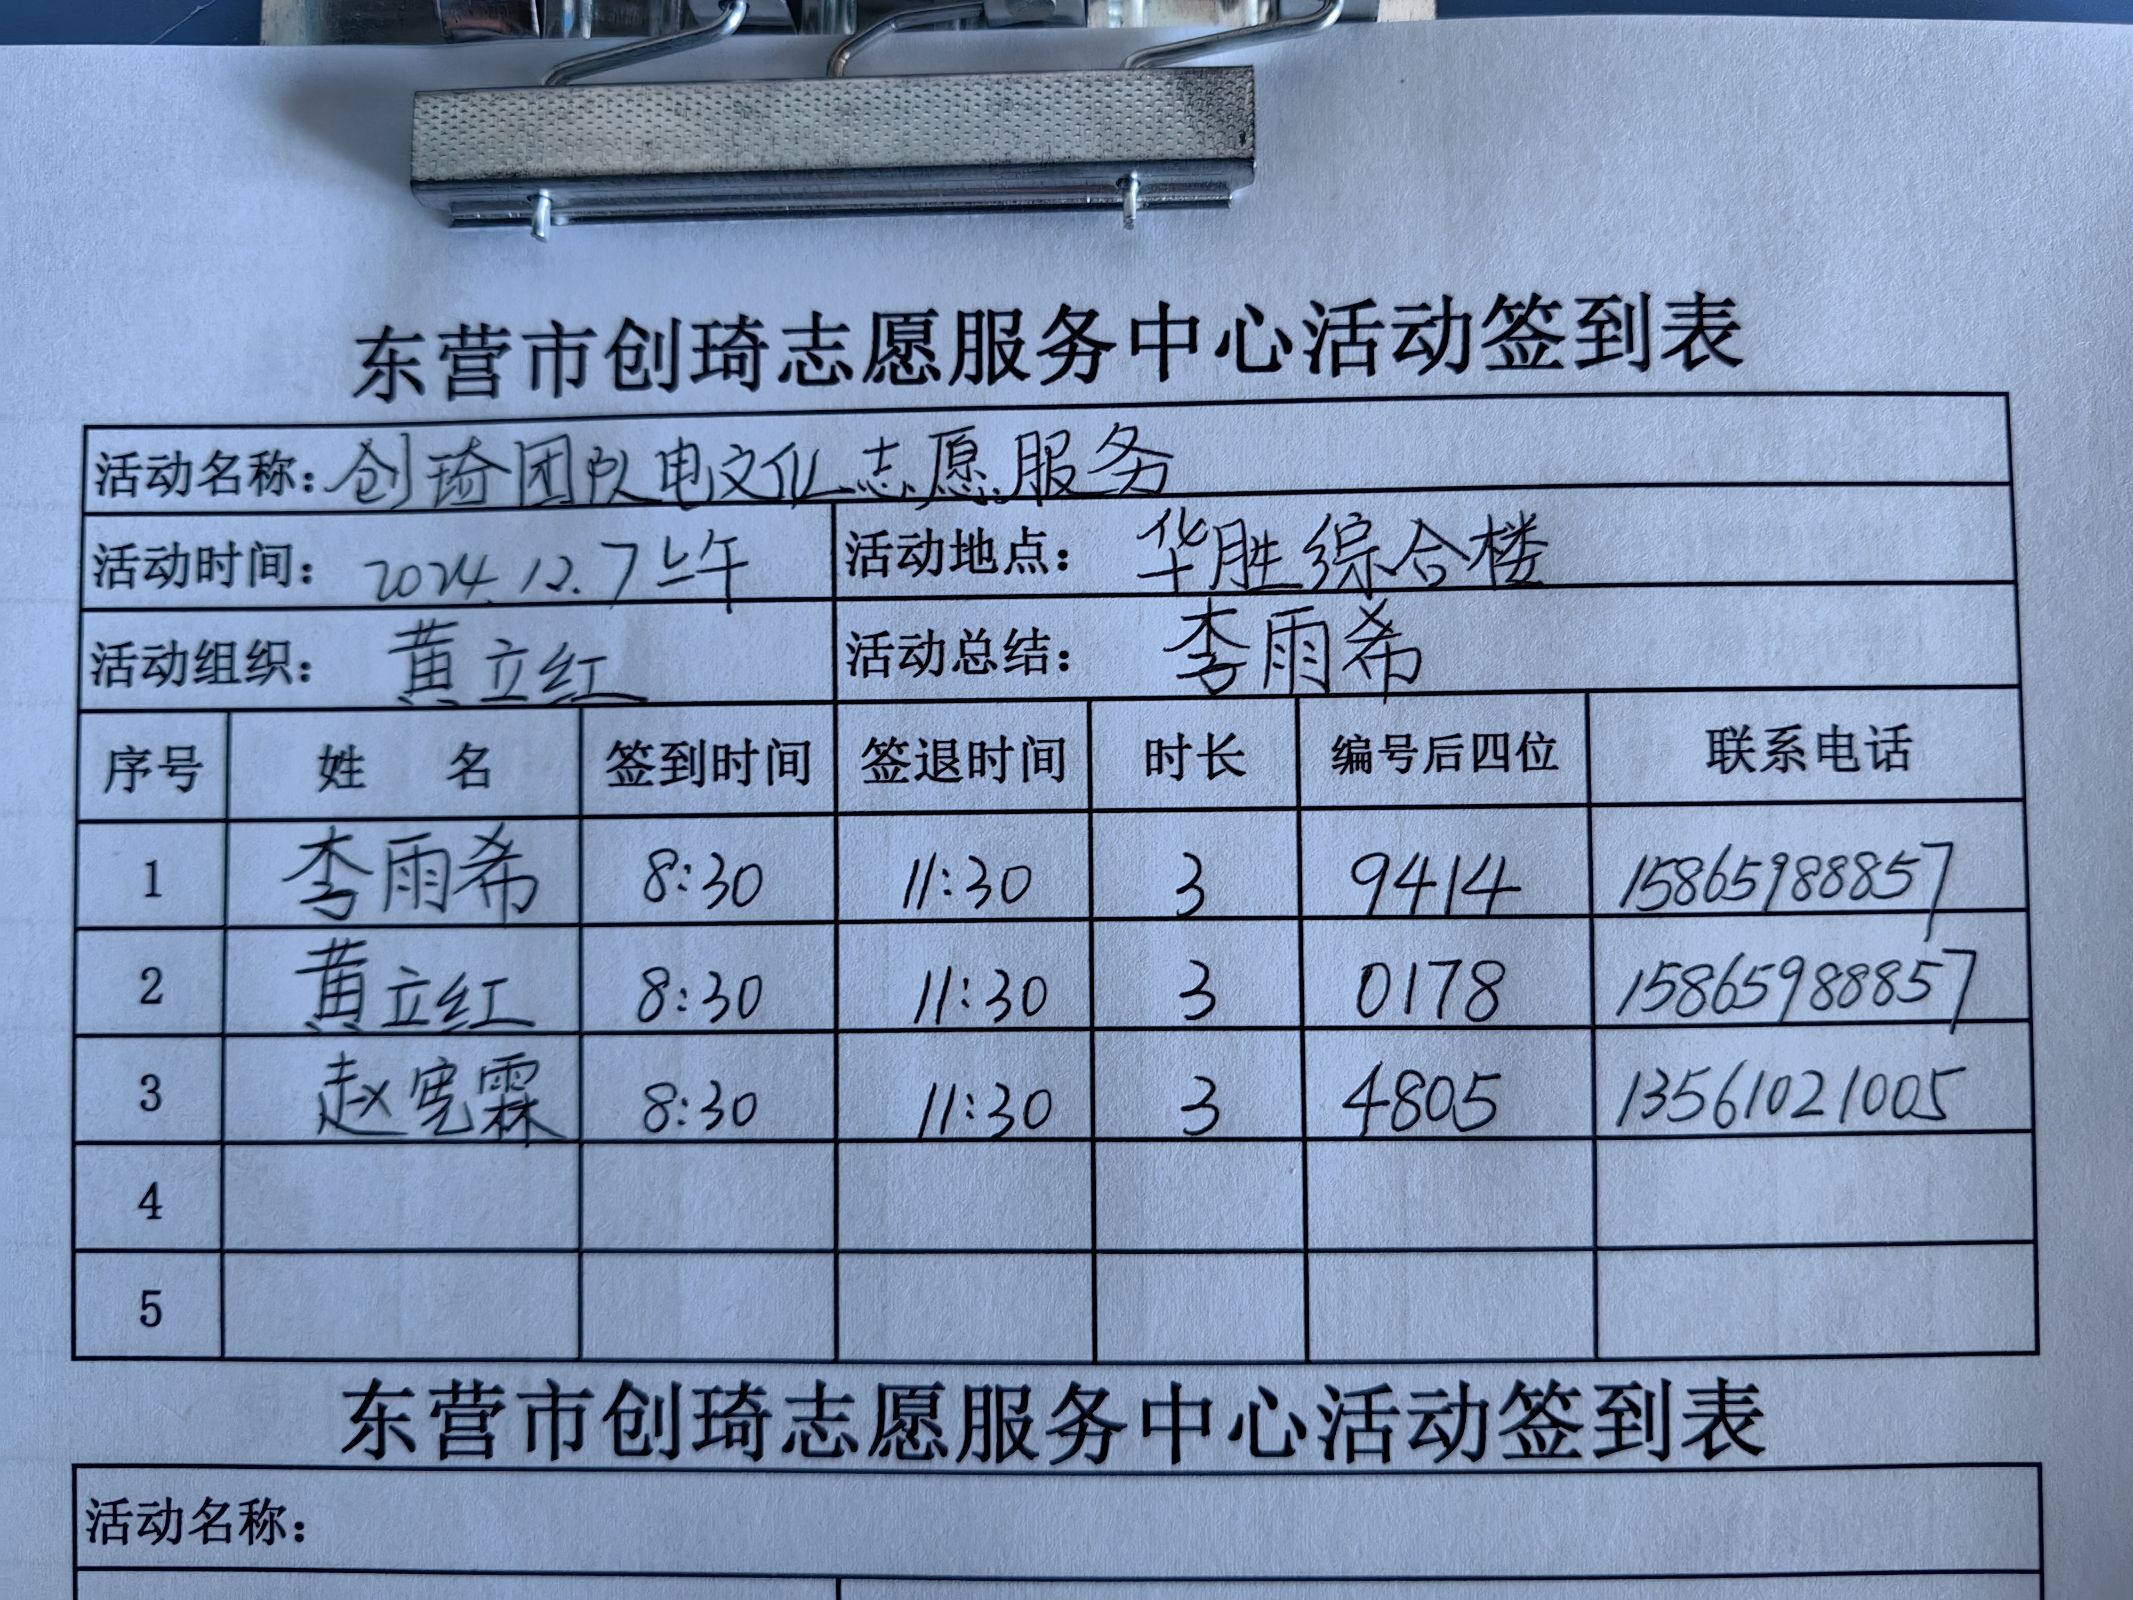 东营市创琦志愿服务中心活动签到表
活动名称：创琦团队电文化志愿服务
活动时间： 2024.12.7上午 活动地点： 华胜综合楼
活动组织： 黄立红 活动总结： 李雨希
序号 姓 名 签到时间 签退时间 时长 编号后四位 联系电话
1 李雨希 8:30 11:30 3 9414 15865988857
2 黄立红 8:30 11:30 3 0178 15865988857
3 赵宪霖 8:30 11:30 3 4805 13561021005
4
5
东营市创琦志愿服务中心活动签到表
活动名称：